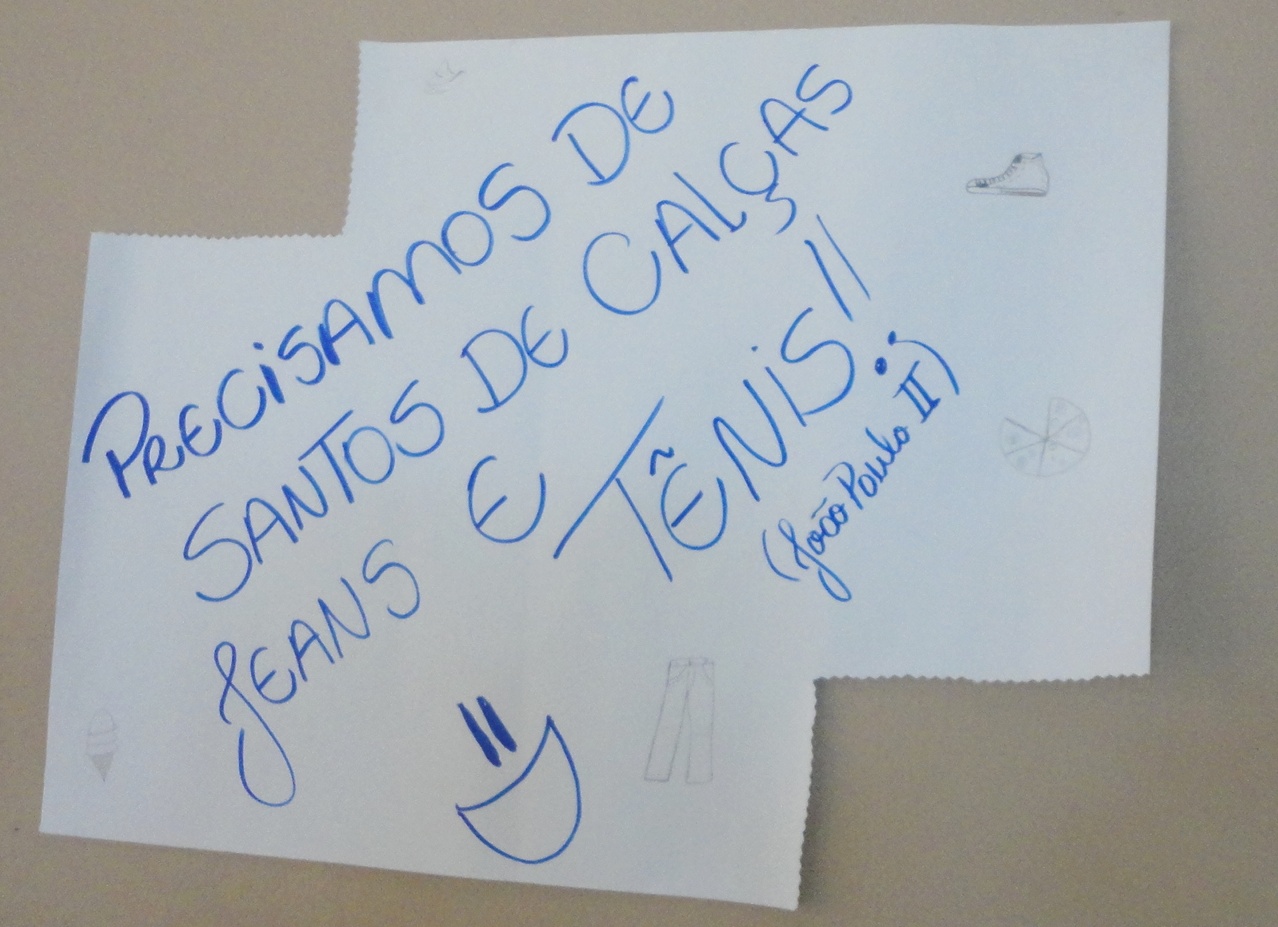 PRECISAMOS DE
SANTOS DE CALÇAS
JEANS E TÊNIS!!
(João Paulo II)